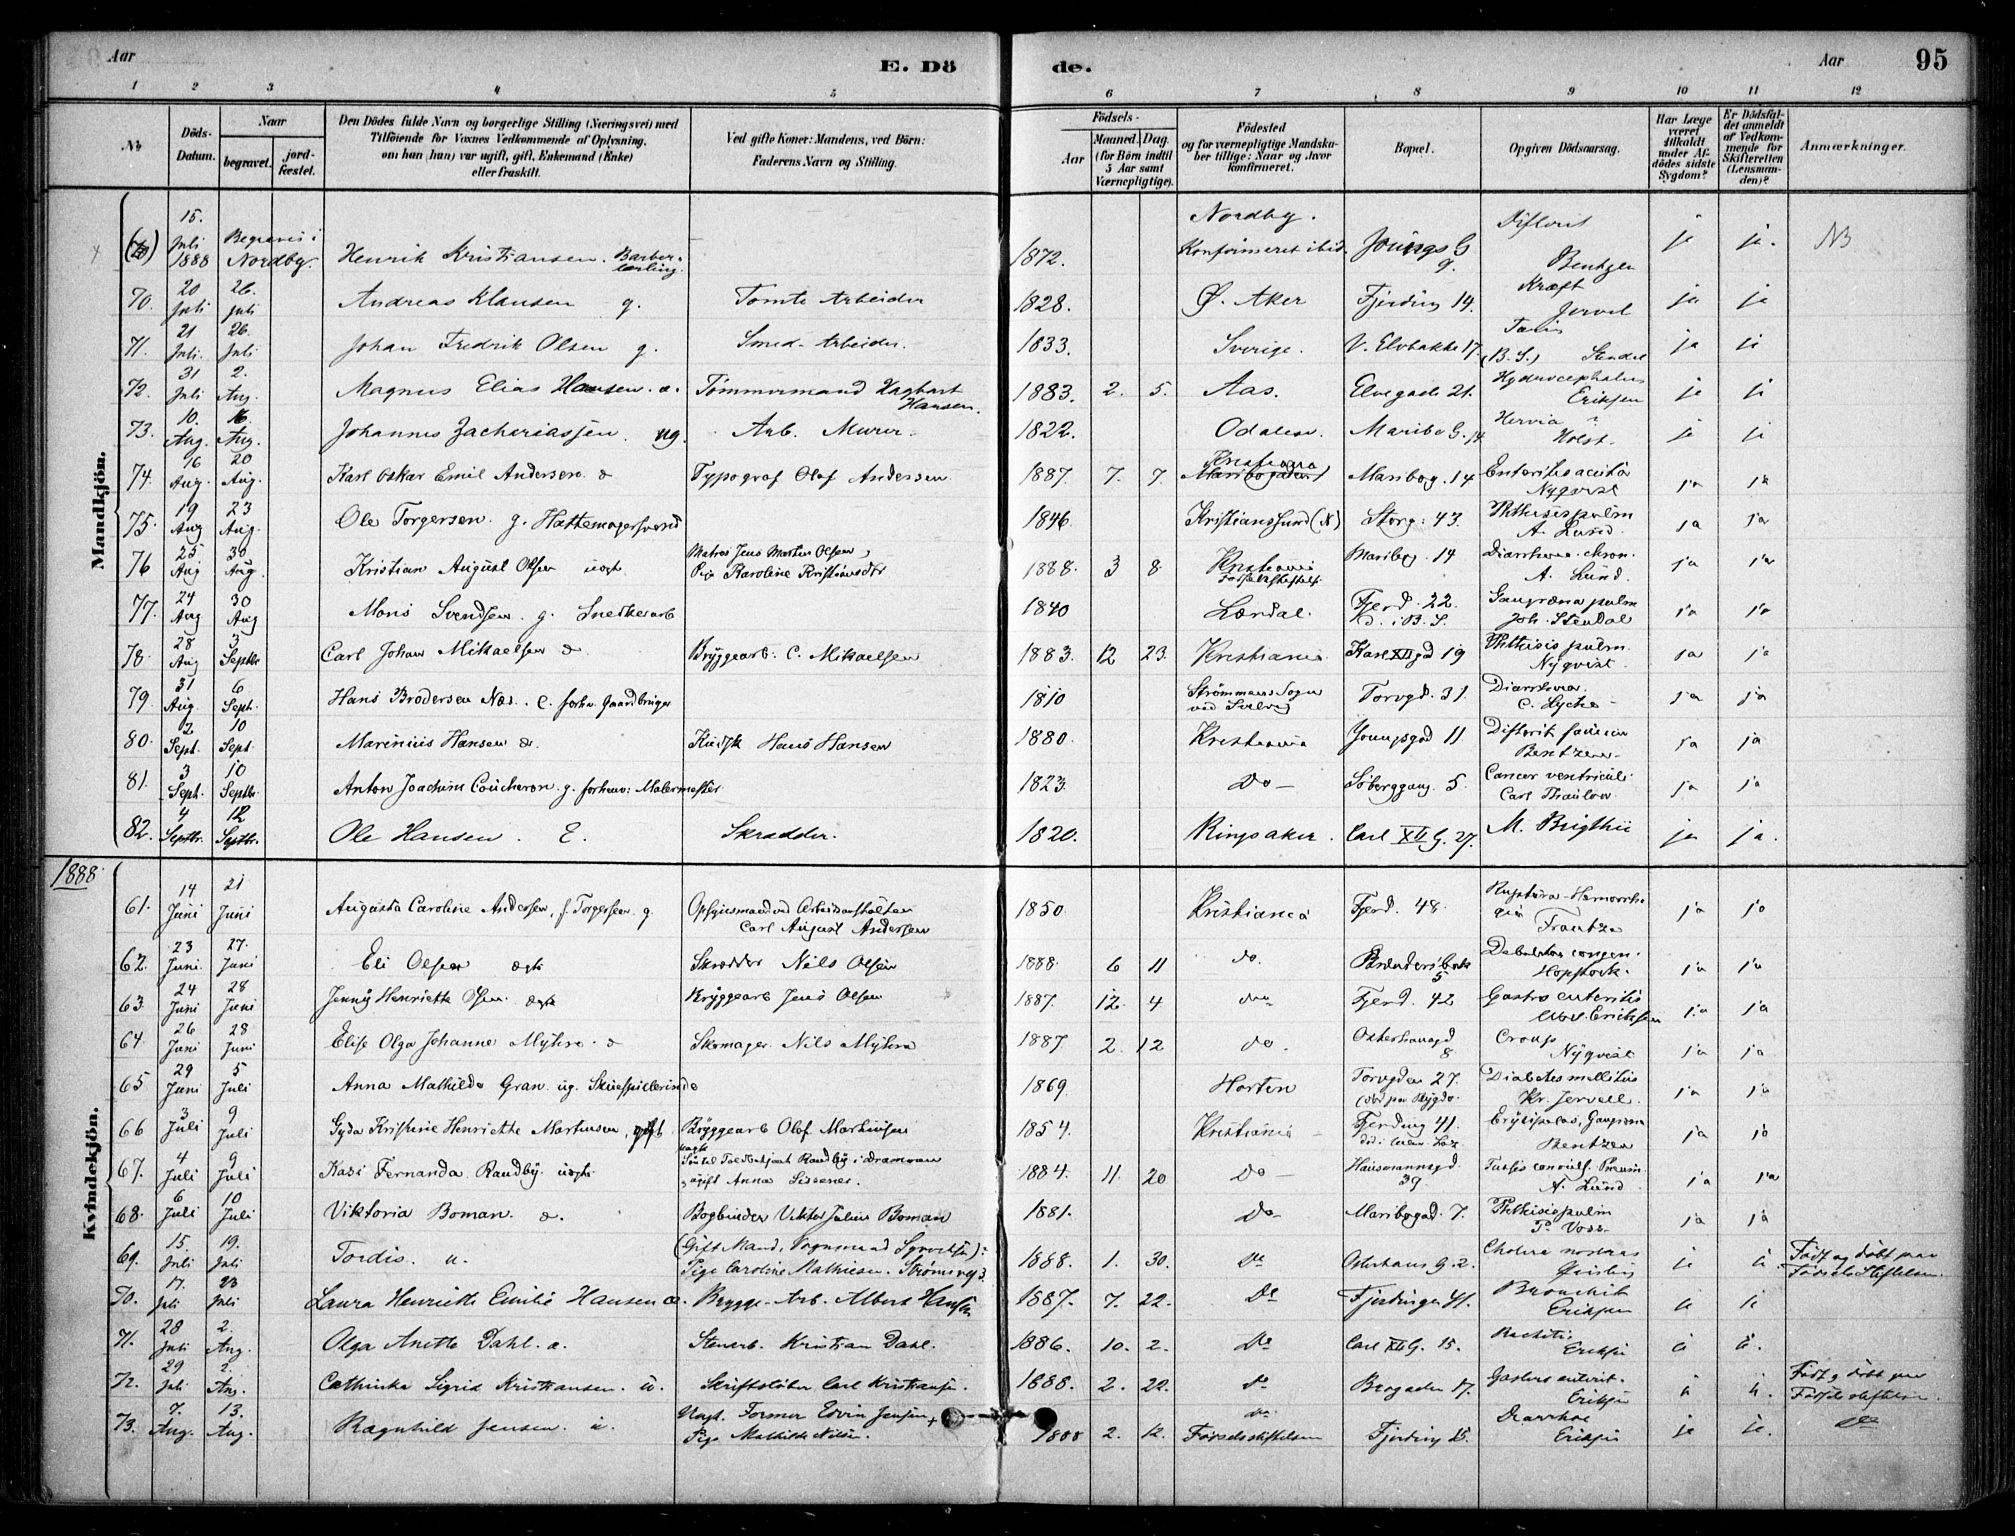 Aar E. Dö de. Aar 95
1 2 3 4 5 6 7 8 9 10 11 12
No Döds-Datum. Naar begravet. jord-fæstet. Den Dödes fulde Navn og borgerlige Stilling (Næringsvei) med Tilföiende for Voxnes Vedkommende af Oplysning, om hun (han) var ugift, gift, Enkemand (Enke) eller fraskilt. Ved gifte Koner: Mandens, ved Börn: Faderens Navn og Stilling. Födsels- Aar Maaned. Dag. (for Börn indtil 5 Aar samt Værnepligtige). Födested og for værnepligtige Mandskaber tillige: Naar og hvor konfirmeret. Bopæl. Opgiven Dödsaarsag. Har Læge været tilkaldt under Afdödes sidste Sygdom? Er Dödsfaldet anmeldt af Vedkommende for Skifteretten (Lensmanden)? Anmærkninger.
Mandkjön.
15. Juli 1888 Begraves i Nordby. Henrik Kristiansen. Barberlærling. 1872. Nordby. Konfirmeret ibid. Difterit Bentzen ja ja. NB
70. 20 Juli 26. Juli Andreas Klausen g. Tomte Arbeider 1828. Ø. Aker Fjerding 14. Kræft Jervel ja ja
71. 21 Juli. 26. Juli Johan Fredrik Olsen g. Smed-Arbeider. 1833. Sverige. V. Elvbakke 17. (B. S.) ja ja
72. 31 Juli 2. Aug. Magnus Elias Hansen. æ. Tømmermand Haghart Hansen. 1883. 2. 5. Aas. Elvegade 21. Hydrocephalus Eriksen ja ja
73. 10. Aug. 16. Aug. Johannes Zachariassen. ug. Arb. Murer. 1822. Odalen. Maribo G. 14 Hernia Holst. ja ja
74. 16 Aug. 20 Aug. Karl Oskar Emil Andersen æ Typograf Olof Andersen 1887. 7. 7. Kristiania Maribog. 14 Enteritis acuta Nyqvist ja ja
75. 19 Aug 23 Aug. Ole Torgersen. g. Hattemagersvend 1846. Kristianssund (N) Storg: 43. Phthisis pulm A. Lund. ja ja
76 25 Aug 30 Aug. Kristian August Olsen uægt. Matros Jens Martin Olsen, Pige Karoline Kristiansdtr 1888. 3 8. Kristiania Fødselsstiftels. Maribog. 14 Diarrhoea chron. A. Lund. ja ja
77. 24 Aug 30 Aug Mons Svendsen. g. Snedkerarb 1840 Lærdal. Fjerd. 22. d. i B. S. Gangræna pulm Joh. Stendal ja ja
78. 28 Aug 3 Septbr Carl Johan Mikaelsen æ Bryggearb. C. Mikaelsen 1883. 12 23. Kristiania Karl XII gd 19 Phthisis pulm. Nyqvist. ja ja
79. 31 Aug. 6 Sept. Hans Brodersen Næs. E. forhv. Gaardbruger 1810 Strømmens Sogn ved Svelvig Torvgd. 31. Diarrhoea. ja ja
80. 2 Sept. 10 Sept. Marinius Hansen æ. Kudsk Hans Hansen 1880. Kristiania Youngsgad 11 Difterit faucium Bentzen ja ja
81. 3 Sept. 10 Septbr Anton Joachim Coucheron. g. forhenv: Malermester 1823. Do — Søberggang. 5. Cancer ventriculi Carl Thaulow ja ja
82. 4 Septbr. 12 Septbr. Ole Hansen. E. Skrædder. 1820. Ringsaker. Carl XII G. 27. M. Brigthii ja ja.
1888
Kvindekjön.
61. 14 Juni 21 Juni Augusta Caroline Andersen, f. Torgersen. g. Opsynsmand ved Arbeidsanstalten Carl August Andersen 1850. Kristiania Fjerd. 48. ja ja
62. 23 Juni. 27. Juni Eli Olsen ægte Skrædder Nils Olsen 1888. 6 11 do. Brendersbak 5 Debilitas congen. Hopstock. ja ja
63. 24 Juni 28 Juni Jenny Henriette Olsen. ægte Bryggearb Jens Olsen 1887. 12. 4 do Fjerd. 42 Gastro enteritis Erichsen ja ja
64. 26 Juni 28 Juni Elise Olga Johanne Myhre. æ Skomager. Nils Myhre 1887 2. 12 do. Osterhausgd 8 Croup Nyqvist. ja ja
65 29 Juni 5 Juli Anna Mathilde Gran ug. Skuespillerinde 1869. Horten Torvgden 27. Diabetes mellitus Kr. Jervell. ja ja
66 3 Juli 9 Juli Gyda Kristine Henriette Martinsen, gift Bryggearb Olof Martinsen 1854. Kristiania — Fjerding 41. Erysipelas, Gangræna Bentzen ja ja
67. 4 Juli 9 Juli KaSi Fernanda Randby. uægte Randby i Drammen ugift Anna 1884. 11. 20 Do — Hausmannsgd. 39. Tussis convuls. Pneum. A. Lund. ja ja
68. 6 Juli 10 Juli Viktoria Boman. æ. Bogbinder Viktor Julius Boman 1881. Do Maribogad. 7. Phthisis pulm P. Voss ja ja
69. 15. Juli 19. Juli Tordis. u. (Gift Mand, Vognmand): Pige Caroline Mathiesen. Strømsvej 3. 1888. 1. 30. Do Osterhaus G. 2. Cholera nostras ja ja Født og døbt paa Fødselsstiftelsen.
70. 17. Juli 23 Juli Laura Henriette Emilie Hansen æ. Brygge-Arb. Albert Hansen 1887. 7. 22. Do Fjerdingen 41. Bronchit Eriksen ja ja
71. 28 Juli 2. Aug. Olga Anette Dahl. æ. Stenarb. Kristian Dahl. 1886. 10. 2. Do Carl XII G. 15. Rachitis Eriksen ja ja.
72. 29 Juli 2. Aug. Cathinka Sigrid Kristiansen. u. Skriftstøber Carl Kristiansen. 1888. 2. 22. do Brogaden 17. Gastro enterit. Eriksen ja ja. Født og døbt paa Fødselsstiftelsen.
73. 7. Aug. 13. Aug. Ragnhild Jensen. u. Ungk. Former Edvin Jensen + Pige Mathilde Nilsen. 1888 2. 12. do Fødselsstiftelsen Fjerding 15. Diarrhoe Eriksen ja ja. do